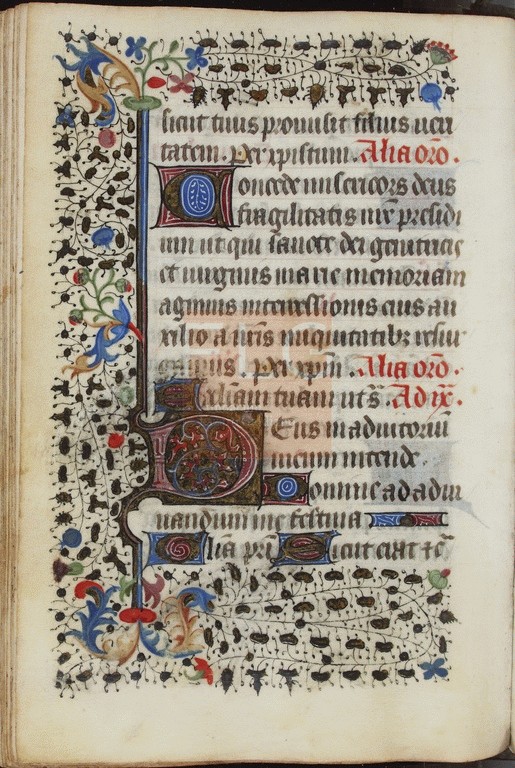 sicut tuus promisit filius veri
tatem. per xpistum. Alia oro.
Concede misericors deus
fragilitatis nre presidi
um ut qui sancte dei genitricis
et virginis marie memoriam
agimus intercessionis eius au
xilio a nris iniquitatibz resur
gamus. per xpm. Alia oro.
Ecclesiam tuam ut s. Ad ix.
Deus in adiutoriu
meum intende.
Domine ad adiu
uandum me festina
Glia pri Sicut erat et c